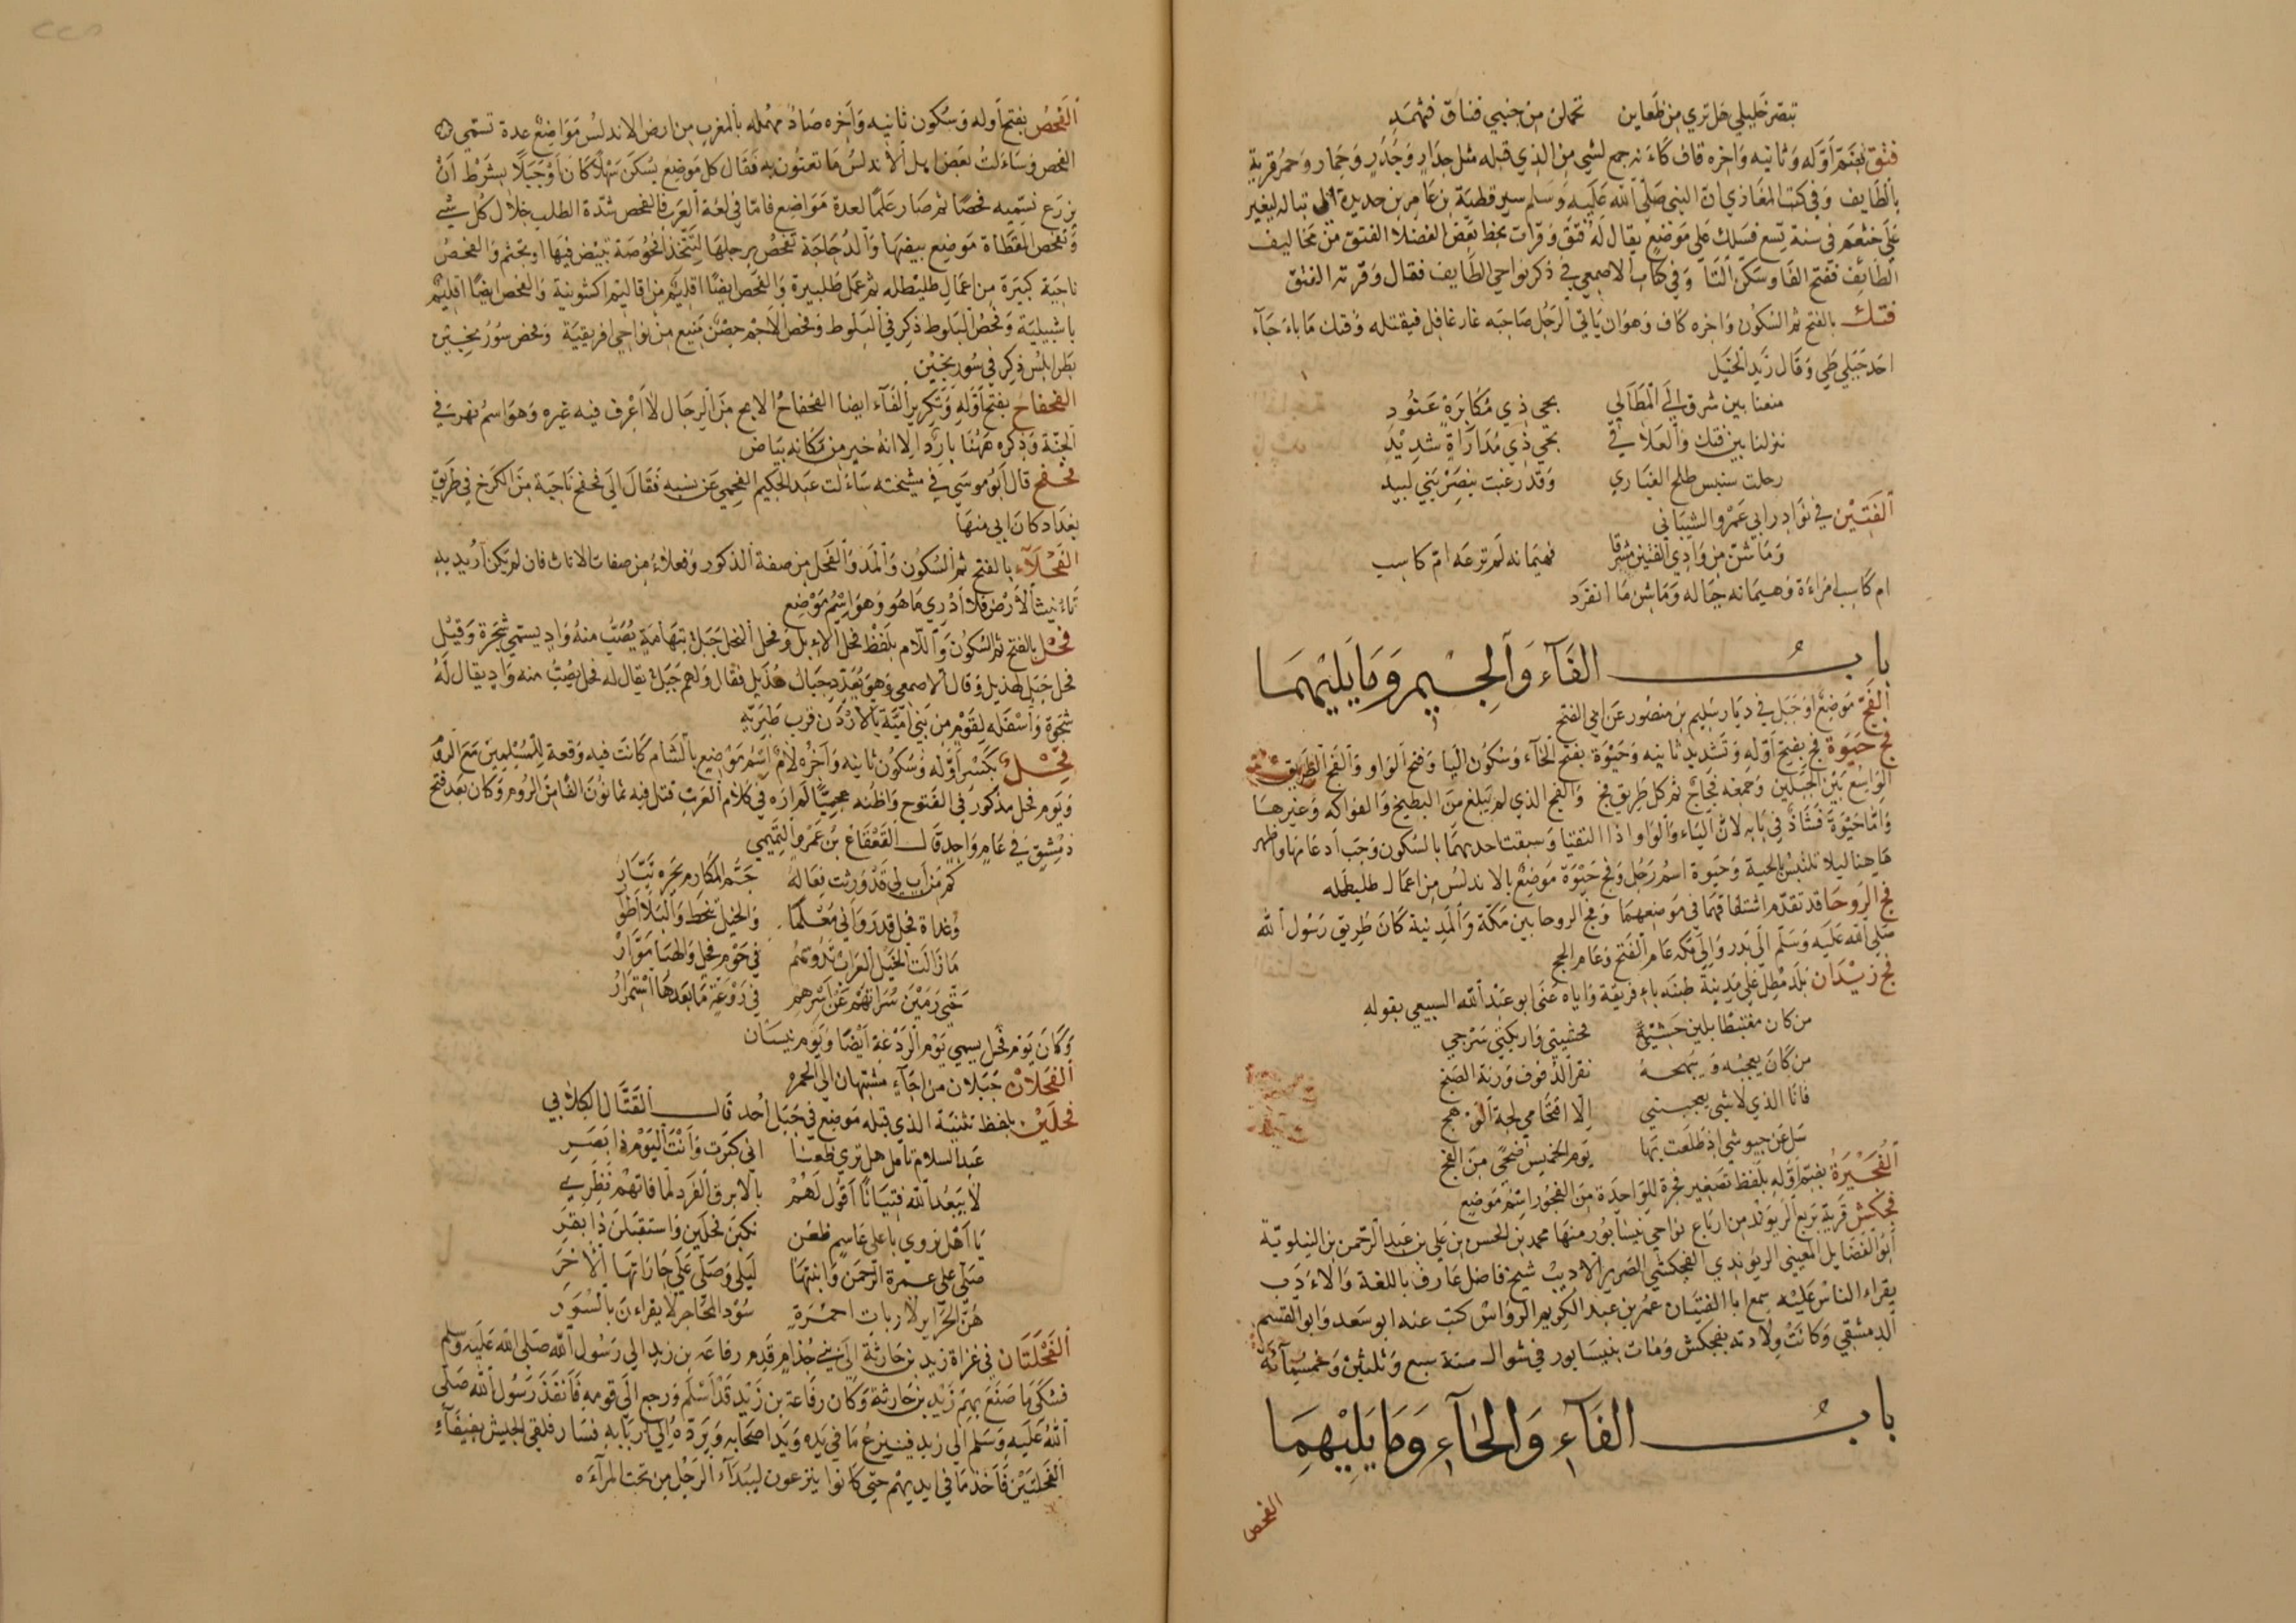 تبصر خليلي هل تري من ظعاين تحملن من جنبي فتاق فثهمد
فتق بضم أوله وثانيه واخره قاف كاءنه جمع لشي من الذي قبله مثل جدار وجدر وحمار وحمر قرية
بالطايف وفي كتب المغازي ان النبي صلى الله عليه وسلم سير قطبة بن عامر بن حديدة الى تباله ليغير
على خثعم في سنة تسع فسلك على موضع يقال له فتق وقرات بخط بعض الفضلا الفتق من مخاليف
الطائف بفتح الفا وسكن التا وفي كتاب الاصمعي في ذكر نواحي الطايف فقال وقرية الفتق
فتك بالفتح ثم السكون واخره كاف وهو ان ياتي الرجل صاحبه غار غافل فيقتله وفتك ماباء جآء
احد جبلي طي وقال زيد الخيل
منعنا بين شرق الي المطالي بحي ذي مكابرة عنود
نزلنا بين فتك والعلاقي بحي ذي مداراة شديد
رحلت سنبس طلح الغباري وقد رغبت بنصر بني لبيد
الفتين في نوادر ابي عمرو الشيباني
وما شن من وادي الفتين مشرقا فهيمانه لم ترعه ام كاسب
ام كاسب امراءة وهيمانه جباله وما شن ما انفرد
باب الفآء والجيم وما يليهما
الفج موضع او جبل في ديار سليم بن منصور عن ابي الفتح
فج حيوة فج بفتح أوله وتشديد ثانيه وحيوة بفتح الحآء وسكون اليا وفتح الواو والفج الطريق
الواسع بين الجبلين وجمعه فجاج ثم كل طريق فج والفج الذي لم يبلغ من البطيخ والفواكه وغيرها
واما حيوة فشاذ في بابه لان الياء والواو اذا التقيا وسبقت احديهما بالسكون وجب ادغامها وظهر
هاهنا ليلا تلتبس بالحية وحيوة اسم رجل وفج حيوة موضع بالاندلس من اعمال طليطله
فج الروحا قد تقدم اشتقاقهما في موضعهما وفج الروحا بين مكة والمدينة كان طريق رسول الله
صلى الله عليه وسلم الى بدر والى مكه عام الفتح وعام الحج
فج زيدان بلد مطل على مدينة طبنه باءفريقة واياه عنى ابو عبد الله السبيعي بقوله
من كان مغتبطا بلين حشية فحشيتي واريكتي سرجي
من كان يعجبه ويبهجه نقر الدفوف ورنة الصنج
فانا الذي لا شي يعجبني الا اقتحامي لجة الوهج
سل عن جيوشي اذ طلعت بها يوم الخميس ضحي من الفج
الفجيرة بضم أوله بلفظ تصغير فجرة للواحدة من الفجور اسم موضع
فجكش قرية بربع الريوند من ارباع نواحي نيسابور منها محمد بن الحسن بن علي بن عبد الرحمن بن النيلوتية
ابو الفضايل المعيني الريوندي الفجكشي الضرير الاديب شيخ فاضل عارف باللغة والاءدب
يقراء الناس عليه سمع ابا الفتيان عمر بن عبد الكريم الرواس كتب عنه ابو سعد وابو القسم
الدمشقي وكانت ولادته بفجكش ومات بنيسابور في شوال سنة سبع وثلثين وخمسمآئة
باب الفآء والحآء وما يليهما
الفحص
الفحص بفتح أوله وسكون ثانيه وآخره صاد مهمله بالمغرب من ارض الاندلس مواضع عدة تسمي
الفحص وساءلت بعض اهل الاندلس ما تعنون به فقال كل موضع يسكن سهلا كان أو جبلا بشرط أن
يزرع نسميه فحصا ثم صار علما لعدة مواضع فاما في لغة العرب فالفحص شدة الطلب خلال كل شي
وفحص القطاة موضع بيضها والدجاجة تفحص برجلها لتتخذ افحوصة تبيض فيها او تجثم والفحص
ناحية كبيرة من اعمال طليطله ثم عمل طلبيرة والفحص ايضا اقليم من اقاليم اكشونية والفحص ايضا اقليم
باشبيلية وفحص البلوط ذكر في البلوط وفحص الاجم حصن منيع من نواحي افريقية وفحص سور نجين
بطرابلس ذكر في سور نجين
الفحفاح بفتح أوله وتكرير الفآء ايضا الفحفاح الابح من الرجال لا اعرف فيه غيره وهو اسم نهر في
الجنة وذكره ههنا بارد الا انه خير من مكانه بياض
فحفح قال ابو موسى في مشيخته ساءلت عبد الحكيم الفحفحي عن نسبه فقال الى فحفح ناحية من الكرخ في طريق
بغداد كان ابي منها
الفحلآء بالفتح ثم السكون والمد والفحل من صفة الذكور وفعلاء من صفات الاناث فان لم يكن اريد به
تاءنيث الارض فلا ادري ما هو وهو اسم موضع
فحل بالفتح ثم السكون واللام بلفظ فحل الاءبل وفحل النخل جبل بتهامة يصب منه واد يسمي شجرة وقيل
فحل جبل لهذيل وقال الاصمعي وهو يعدد جبال هذيل فقال ولهم جبل يقال له فحل يصب منه واد يقال له
شجوة وأسفله لقوم من بني امية بالاردن قرب طبرية
فحل بكسر أوله وسكون ثانيه وآخره لام اسم موضع بالشام كانت فيه وقعة للمسلمين مع الروم
ويوم فحل مذكور في الفتوح واظنه عجميا لم اره في كلام العرب قتل فيه ثمانون الفا من الروم وكان بعد فتح
دمشق في عام واحد قال القعقاع بن عمرو التميمي
كم من أب لي قد ورثت فعاله جم المكارم بحره تيار
وغداة فحل قد رواني معلما والخيل تنحط والبلا اطوار
ما زالت الخيل العراب تدوسهم في حوم فحل والهبا موار
حتى رمين سراتهم عن اسرهم في روعة ما بعدها استمرار
وكان يوم فحل يسمي يوم الردغة ايضا ويوم نيسان
الفحلان جبلان من اجآء مشتبهان الى الحمره
فحلين بلفظ تثنية الذي قبله موضع في جبل أحد قال القتال الكلابي
عبد السلام تامل هل تري ظعنا انى كبرت وأنت اليوم ذا بصر
لا يبعد الله فتيانا اقول لهم بالابرق الفرد لما فاتهم نظري
يا اهل تروي باعلي عاسم ظعن نكبن فحلين واستقبلن ذا بقر
صلى على عمرة الرحمن وابنتها ليلي وصلي على جاراتها الاخر
هن الحراير لا ربات احمرة سود المحاجر لا يقراءن بالسور
الفحلتان في غزاة زيد بن حارثة الى بني جذام قدم رفاعه بن زيد الى رسول الله صلى الله عليه وسلم
فشكى ما صنع بهم زيد بن حارثة وكان رفاعة بن زيد قد أسلم ورجع الى قومه فأنفذ رسول الله صلى
الله عليه وسلم الى زيد فينزع ما في يده ويد اصحابه ويرده الى اربابه فسار فلقي الجيش بفيفآء
الفحلتين فأخذ ما في ايديهم حتى كانوا ينزعون لبد الرجل من تحت المرآءة